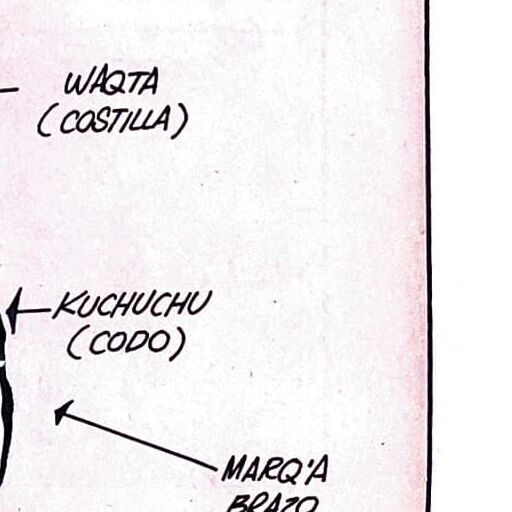 WAQTA
(COSTILLA)
KUCHUCHU
(CODO)
MARQ'A
BRAZO